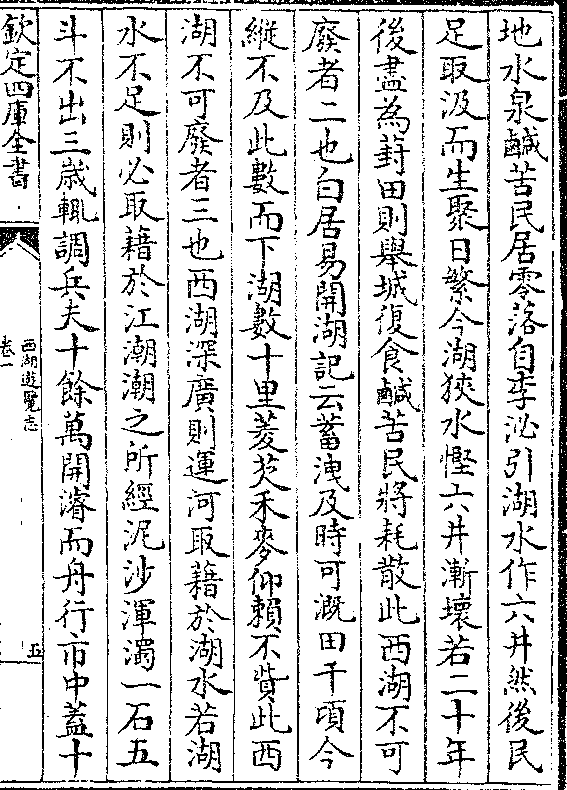 地水泉鹹苦民居零落自李泌引湖水作六井然後民
足取汲而生聚日繁今湖狹水慳六井漸壞若二十年
後盡為葑田則舉城復食鹹苦民將耗散此西湖不可
廢者二也白居易開湖記云蓄洩及時可溉田千頃今
縱不及此數而下湖數十里菱芡禾麥仰賴不貲此西
湖不可廢者三也西湖深廣則運河取藉於湖水若湖
水不足則必取藉於江潮潮之所經泥沙渾濁一石五
斗不出三嵗輒調兵夫十餘萬開濬而舟行市中蓋十
欽定四庫全書
西湖遊覽志
卷一
五